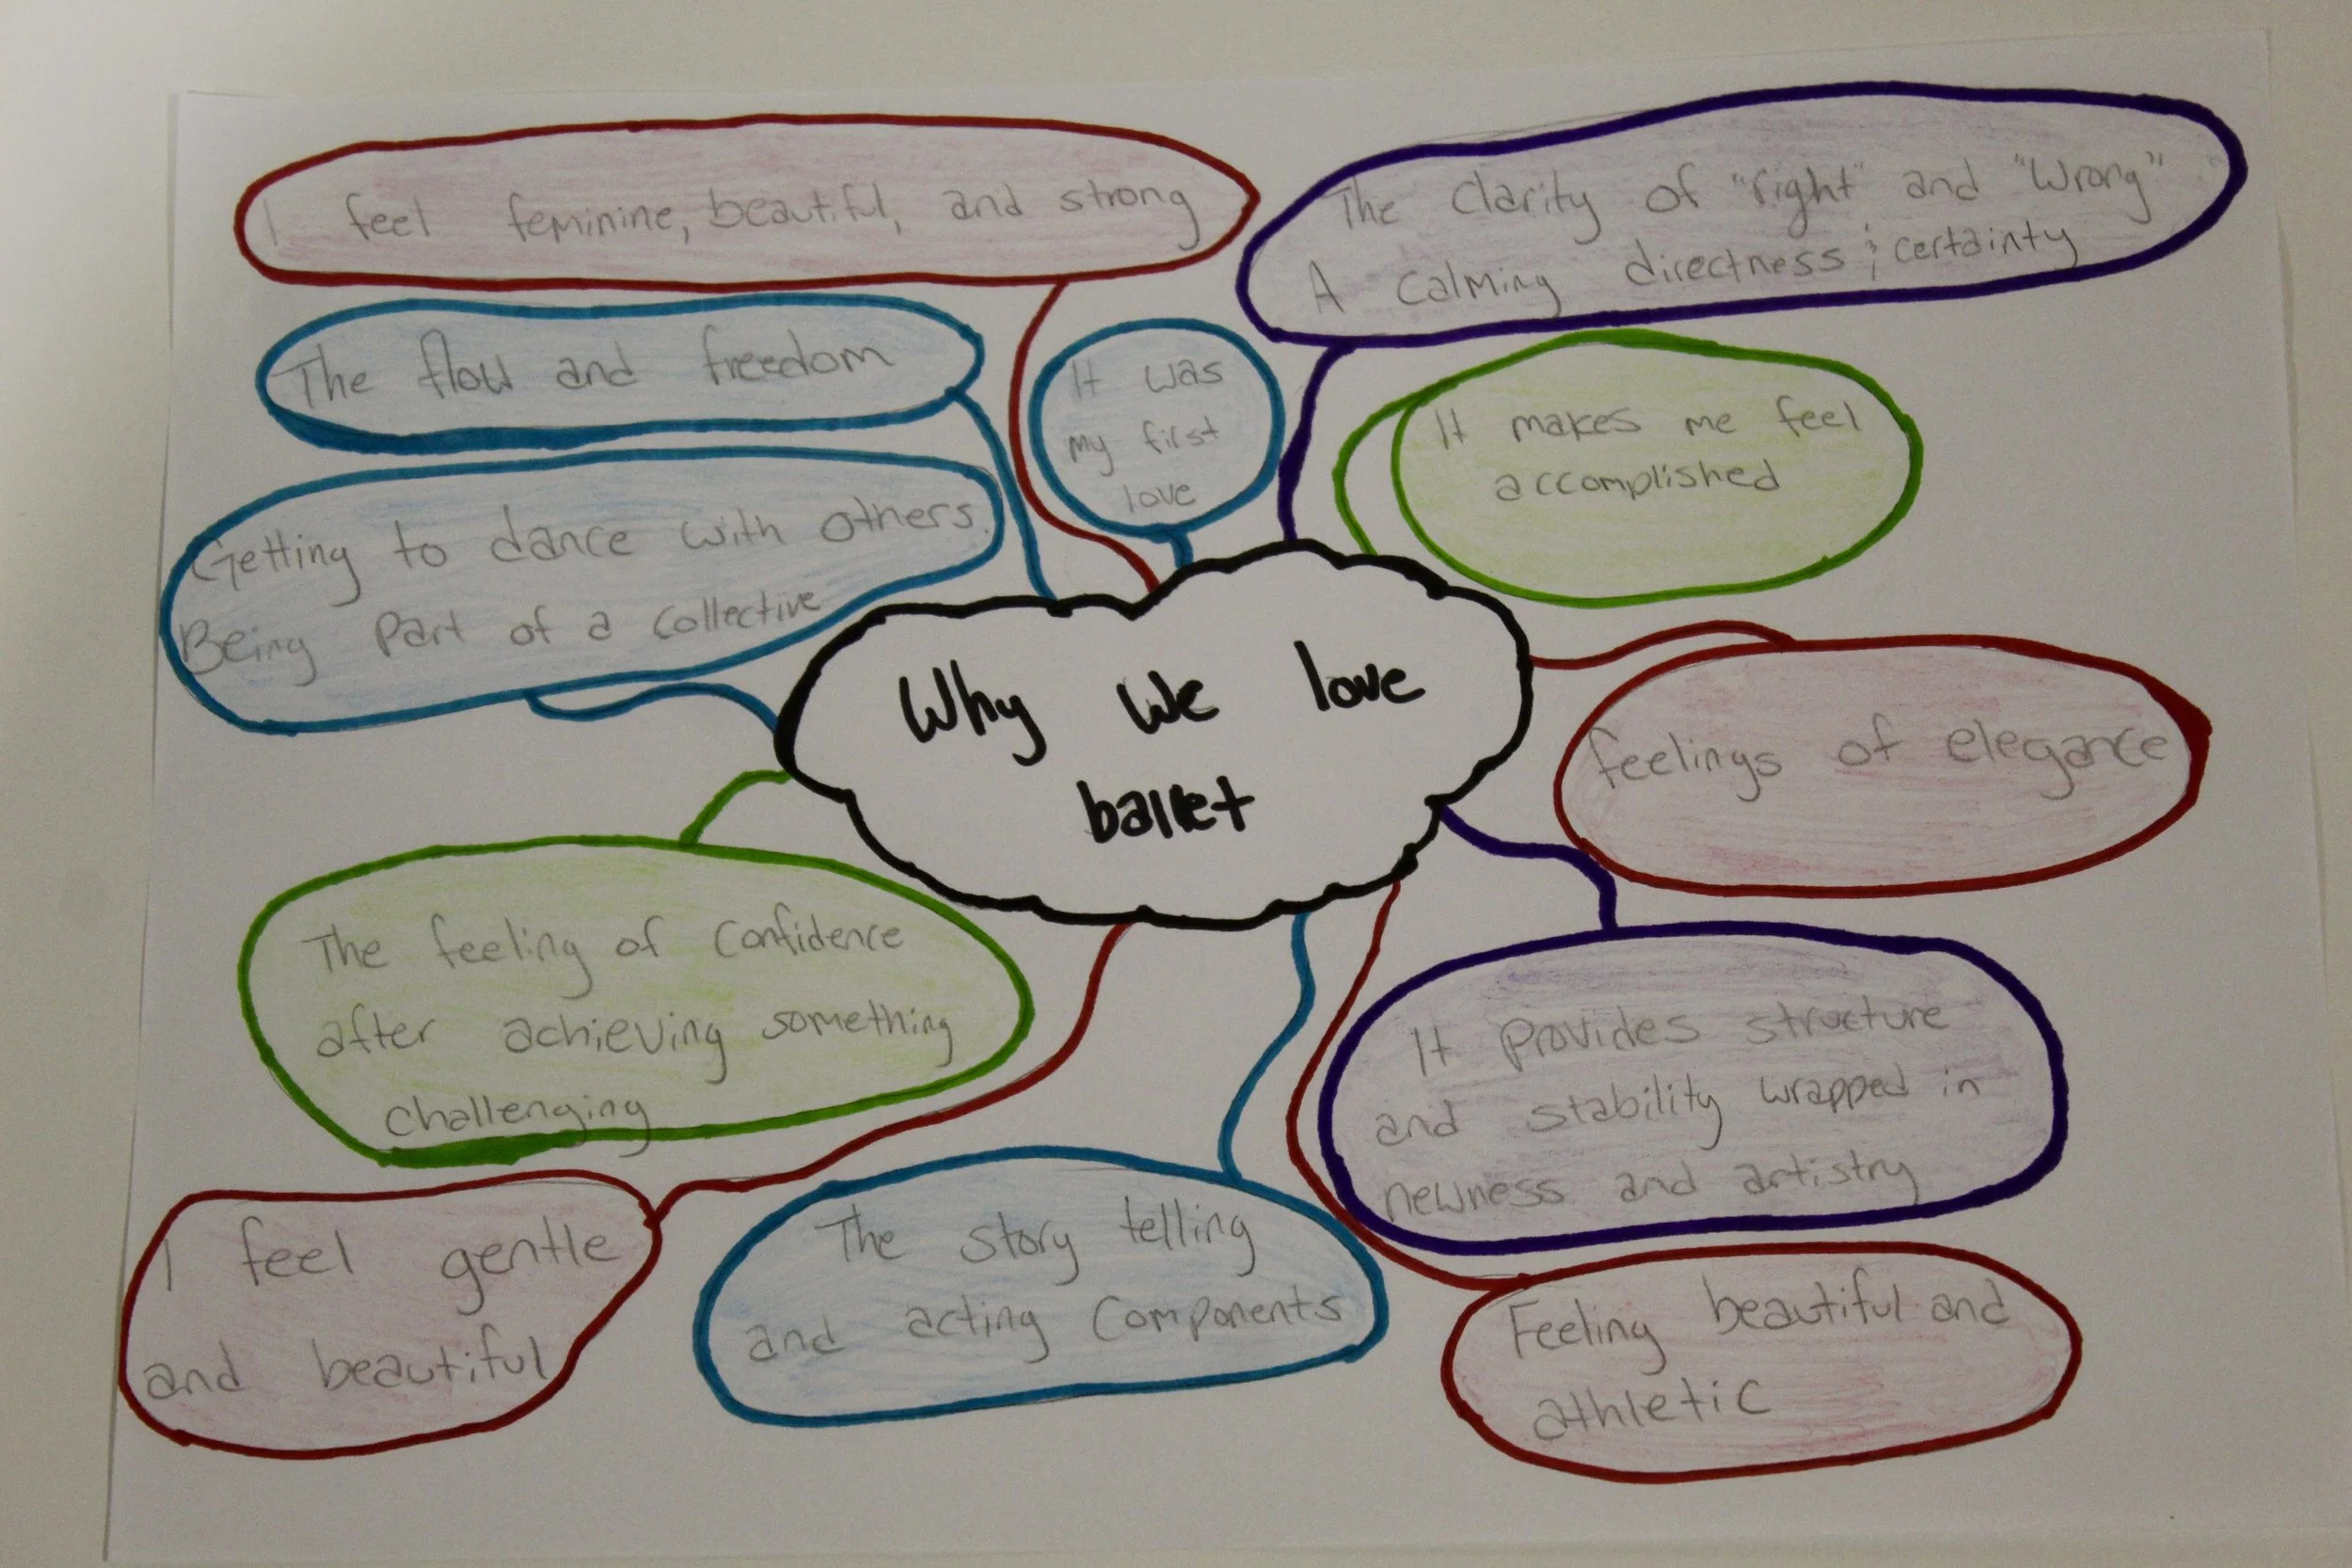 I feel feminine, beautiful, and strong
The clarity of "right" and "wrong"
A calming directness & certainty
The flow and freedom
It was
my first
love
It makes me feel
accomplished
Getting to dance with others.
Being part of a collective
Why we love
ballet
feelings of elegance
The feeling of confidence
after achieving something
challenging
It provides structure
and stability wrapped in
newness and artistry
I feel gentle
and beautiful
The story telling
and acting components
Feeling beautiful and
athletic